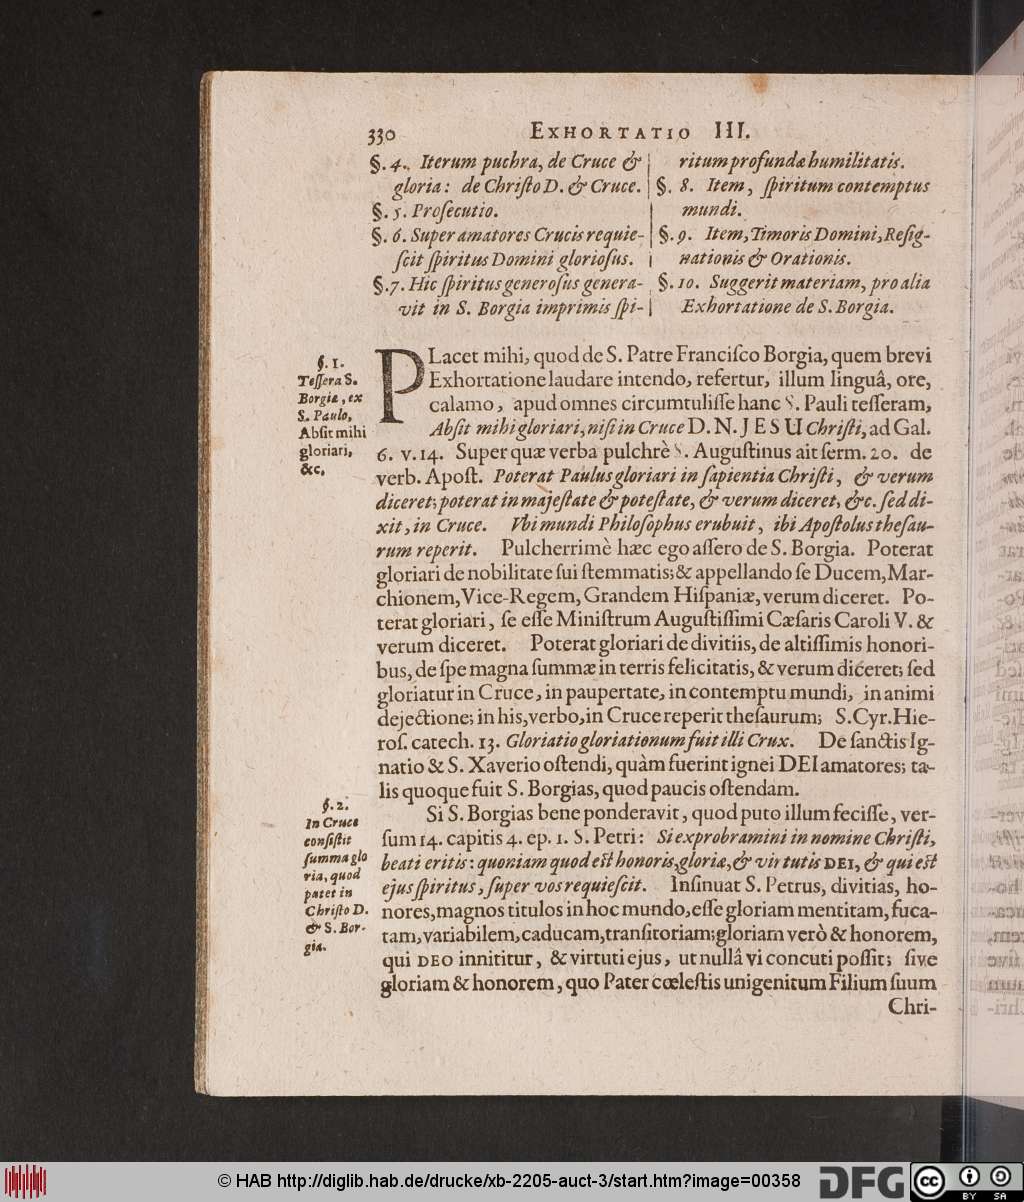 330 EXHORTATIO III.
§. 4. Iterum puchra, de Cruce &
gloria: de Chriſto D. & Cruce.
§. 5. Proſecutio.
§. 6. Super amatores Crucis requie-
ſcit ſpiritus Domini glorioſus.
§. 7. Hic ſpiritus generoſus genera-
vit in S. Borgia imprimis ſpi-
ritum profundæ humilitatis.
§. 8. Item, ſpiritum contemptus
mundi.
§. 9. Item, Timoris Domini, Reſig-
nationis & Orationis.
§. 10. Suggerit materiam, pro alia
Exhortatione de S. Borgia.
§. 1.
Teſſera S.
Borgiæ, ex
S. Paulo,
Abſit mihi
gloriari,
&c,
PLacet mihi, quod de S. Patre Franciſco Borgia, quem brevi
Exhortatione laudare intendo, refertur, illum linguâ, ore,
calamo, apud omnes circumtuliſſe hanc S. Pauli teſſeram,
Abſit mihi gloriari, niſi in Cruce D. N. JESU Chriſti, ad Gal.
6. v. 14. Super quæ verba pulchrè S. Auguſtinus ait ſerm. 20. de
verb. Apoſt. Poterat Paulus gloriari in ſapientia Chriſti, & verum
diceret; poterat in majeſtate & poteſtate, & verum diceret, &c. ſed di-
xit, in Cruce. Vbi mundi Philoſophus erubuit, ibi Apoſtolus theſau-
rum reperit. Pulcherrimè hæc ego aſſero de S. Borgia. Poterat
gloriari de nobilitate ſui ſtemmatis; & appellando ſe Ducem, Mar-
chionem, Vice-Regem, Grandem Hiſpaniæ, verum diceret. Po-
terat gloriari, ſe eſſe Miniſtrum Auguſtiſſimi Cæſaris Caroli V. &
verum diceret. Poterat gloriari de divitiis, de altiſſimis honori-
bus, de ſpe magna ſummæ in terris felicitatis, & verum diceret; ſed
gloriatur in Cruce, in paupertate, in contemptu mundi, in animi
dejectione; in his, verbo, in Cruce reperit theſaurum; S. Cyr. Hie-
roſ. catech. 13. Gloriatio gloriationum fuit illi Crux. De ſanctis Ig-
natio & S. Xaverio oſtendi, quàm fuerint ignei DEI amatores; ta-
lis quoque fuit S. Borgias, quod paucis oſtendam.
§. 2.
In Cruce
conſiſtit
ſumma glo
ria, quod
patet in
Chriſto D.
& S. Bor-
gia.
Si S. Borgias bene ponderavit, quod puto illum feciſſe, ver-
ſum 14. capitis 4. ep. 1. S. Petri: Si exprobramini in nomine Chriſti,
beati eritis: quoniam quod eſt honoris, gloriæ, & virtutis DEI, & qui eſt
ejus ſpiritus, ſuper vos requieſcit. Inſinuat S. Petrus, divitias, ho-
nores, magnos titulos in hoc mundo, eſſe gloriam mentitam, fuca-
tam, variabilem, caducam, tranſitoriam; gloriam verò & honorem,
qui DEO innititur, & virtuti ejus, ut nullâ vi concuti poſſit; ſive
gloriam & honorem, quo Pater cœleſtis unigenitum Filium ſuum
Chri-
© HAB http://diglib.hab.de/drucke/xb-2205-auct-3/start.htm?image=00358
DFG
cc BY SA